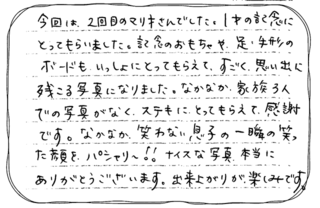 今回は、2回目のマリオさんでした。1才の記念に
とってもらいました。記念のおもちゃや、足・手形の
ボードも、いっしょにとってもらえて、すごく、思い出に
残こる写真になりました。なかなか、家族3人
での写真がなく、ステキに、とってもらえて、感謝
です。なかなか、笑わない、息子の一瞬の笑っ
た顔を、パシャリ〜!! ナイスな写真、本当に
ありがとうございます。出来上がりが、楽しみです。